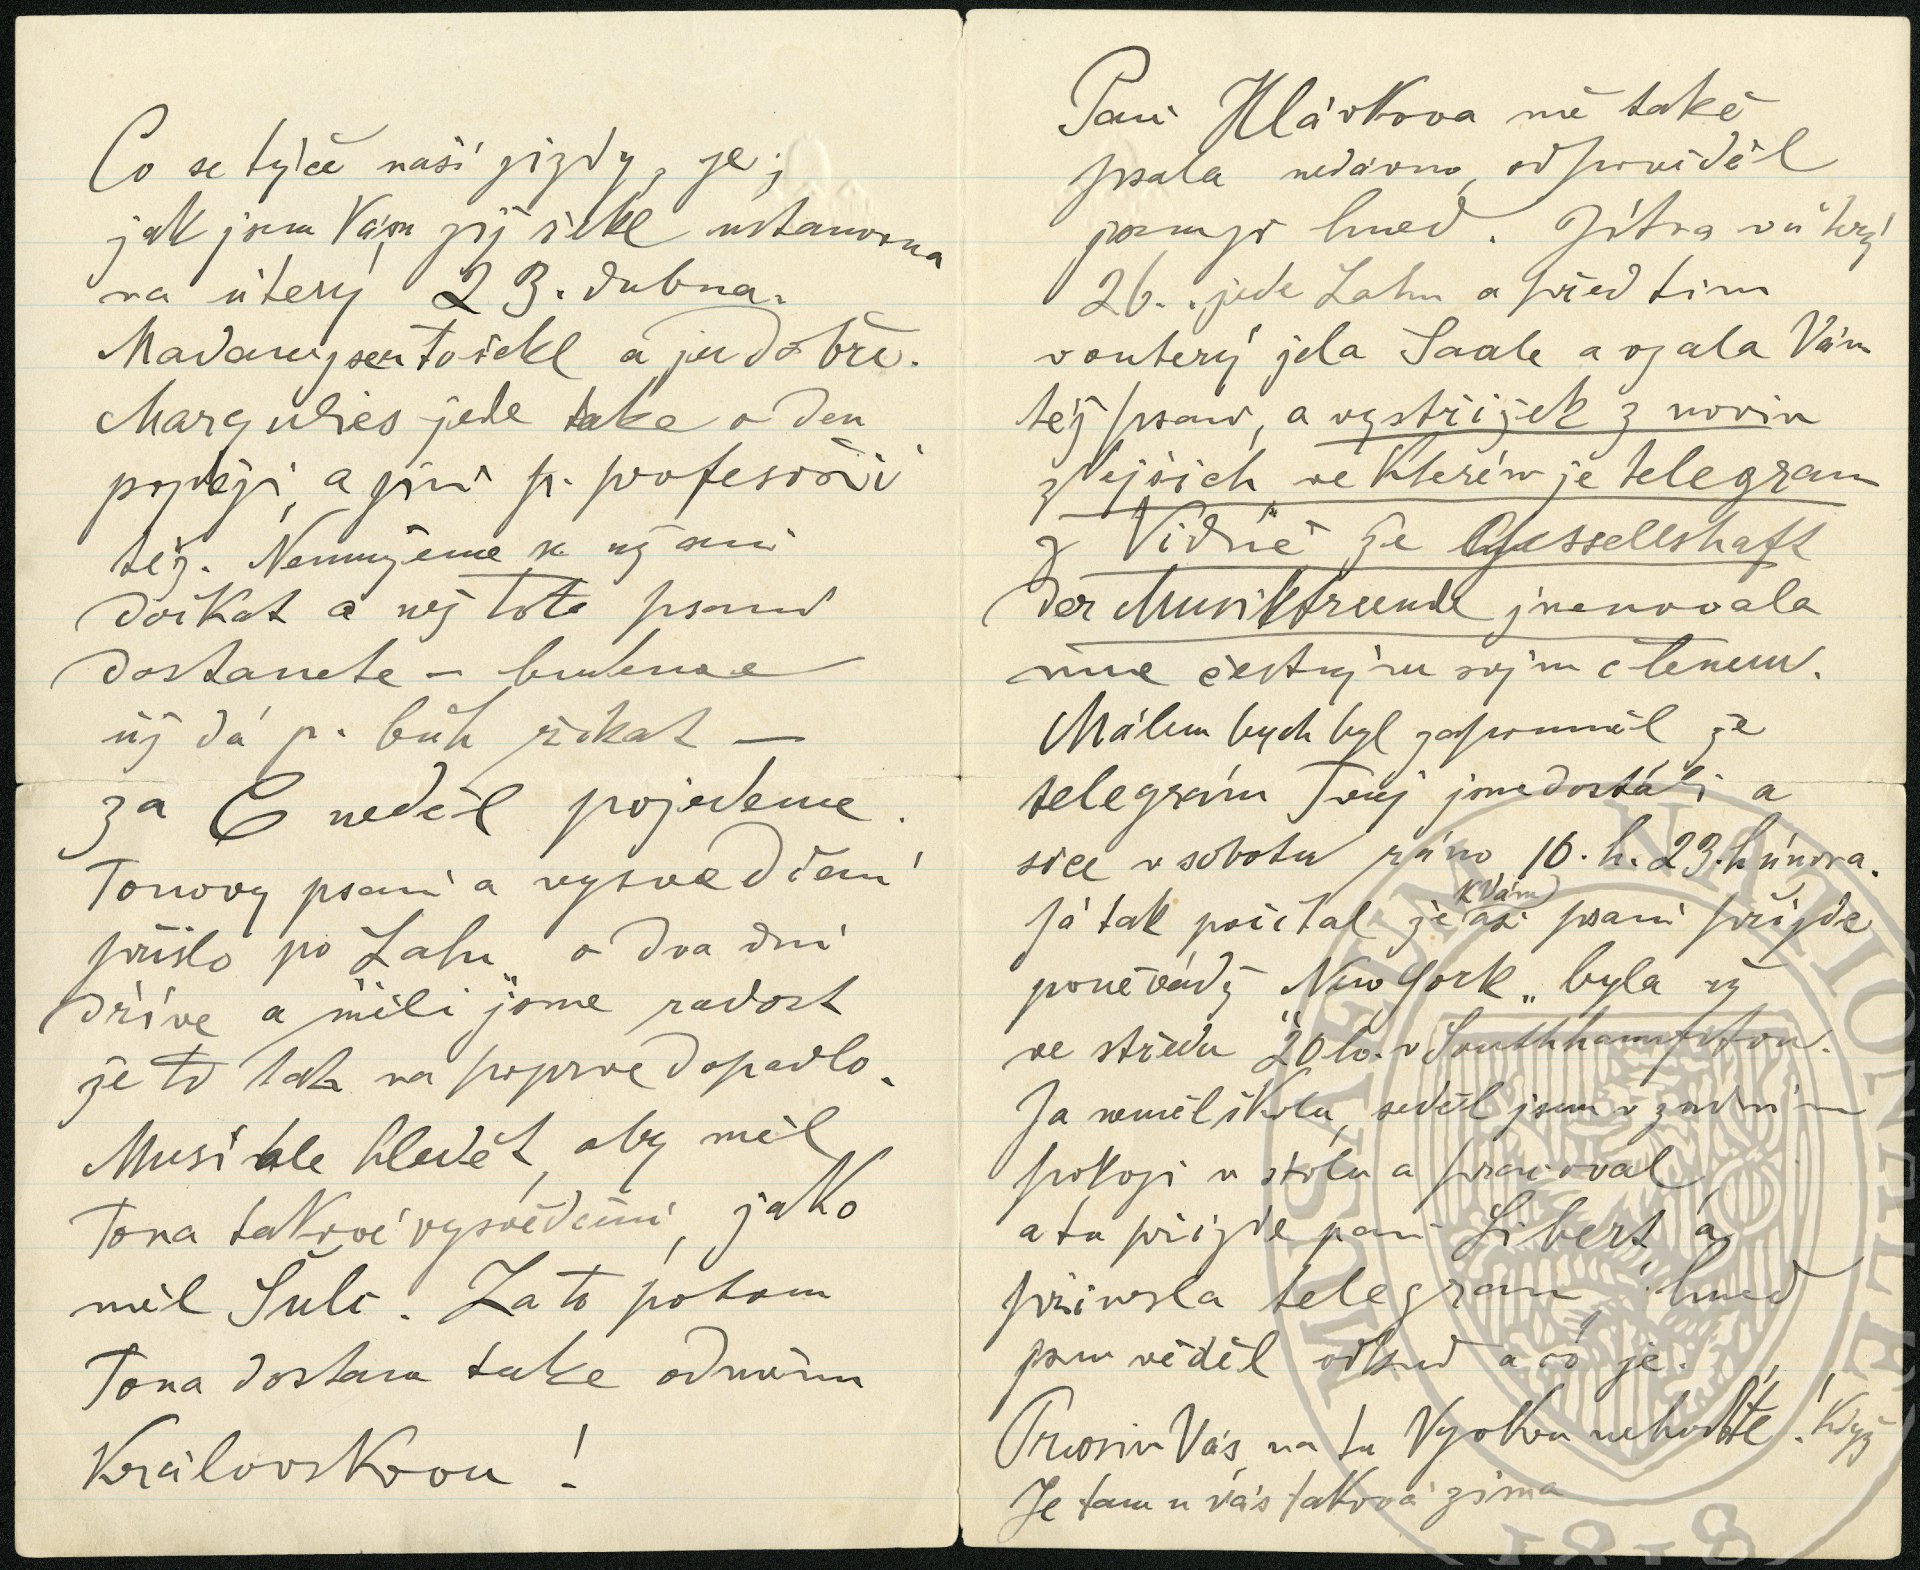 Co se týče naší jizdy, je,
jak jsem Vám již řekl ustanovena
na úterý 23. dubna.
Madam jsem to řekl a je dobře.
Margulies jede take o den
později, a jiní p. profesoři
též. Nemužeme se už ani
dočkat a než toto psaní
dostanete – budeme
už dá p. bůh řikat –
za 6 neděl pojedeme.
Tonovy psani a vysvědčení
přišlo po „Lahn„ o dva dni
dříve a měli jsme radost
že to tak na poprve dopadlo.
Musí ale hledět, aby měl
Tona takové vysvědčení, jako
měl Šulc. Za to potom
Tona dostane take odměnu
Královskou!
Pani Hlávkova mě také
psala nedavno, odpověděl
jsem ji hned. Jitra v úterý
26. jede Lahn a před tim
v outerý jela Saale a vzala Vám
též psaní, a vystřižek z novin
zdejsich ve kterém je telegram
z Vidně že Gessellshaft
der Musikfreunde jmenovala
mne čestným svjm členem.
Málem bych byl zapomněl že
telegrám Tvůj jsme dostáli a
sice v sobotu ráno 10. h. 23. h února.
Já tak počital že k Vám asi psani přijde
poněvádž „New York„ byla už
ve středu 20ho. v Southhampton.
Ja neměl školu, seděl jsem v zadním
pokoji u stolu a pracoval
a tu přijde pani Sibert a
přinesla telegram, hned
jsem věděl odkud a co je.
Prosim Vás na tu Vysokou nehodte! Když
Je tam u vás taková zima
MUSAEUM NATIONALE PR
1818